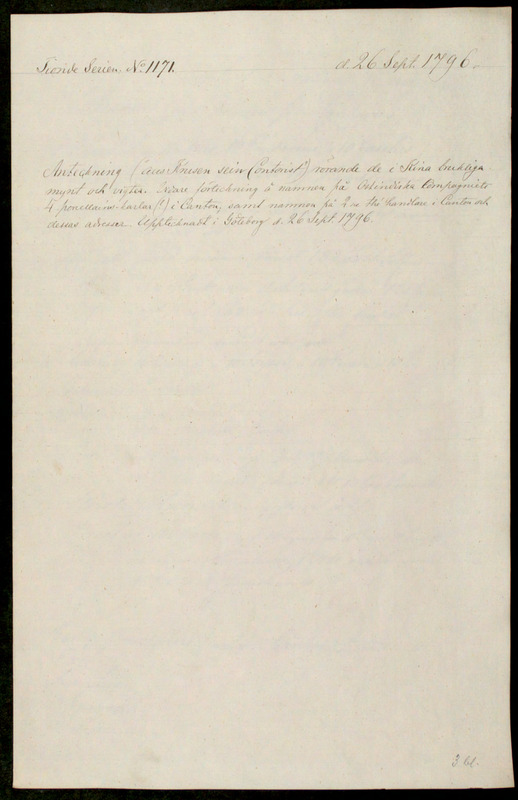 Tionde Serien, No 1171.
d. 26 Sept. 1796.
Anteckning ( rörande de i Kina brukliga
mynt och vigter. förteckning å namnen på Ostindiska Compagniets
4 porcellains-karlar (?) i Canton, samt namnen på 2 ne thé handlare i Canton och
dessas adresser. Upptecknadt i Göteborg d. 26 Sept. 1796.
3 bl.